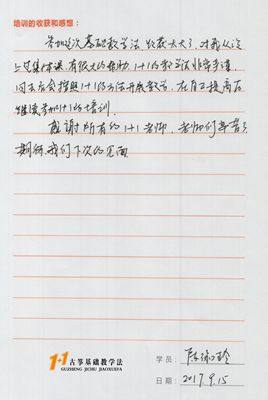 培训的收获和感想：
参加这次基础教学法收获太大了，对我从没
上过集体课有很大的帮助，1+1的教学法非常专谨，
回去后会按照1+1的方法开展教学，在自己提高后
继续参加1+1的培训。
感谢所有的1+1老师，老师们辛苦了
期待我们下次的见面
1+1古筝基础教学法
GUZHENG JICHU JIAOXUEFA
学员：
日期：2017.9.15